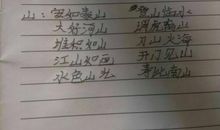 山：安如泰山 登山临水
大好河山 调虎离山
堆积如山 刀山火海
江山如画 开门见山
水色山光 寿比南山